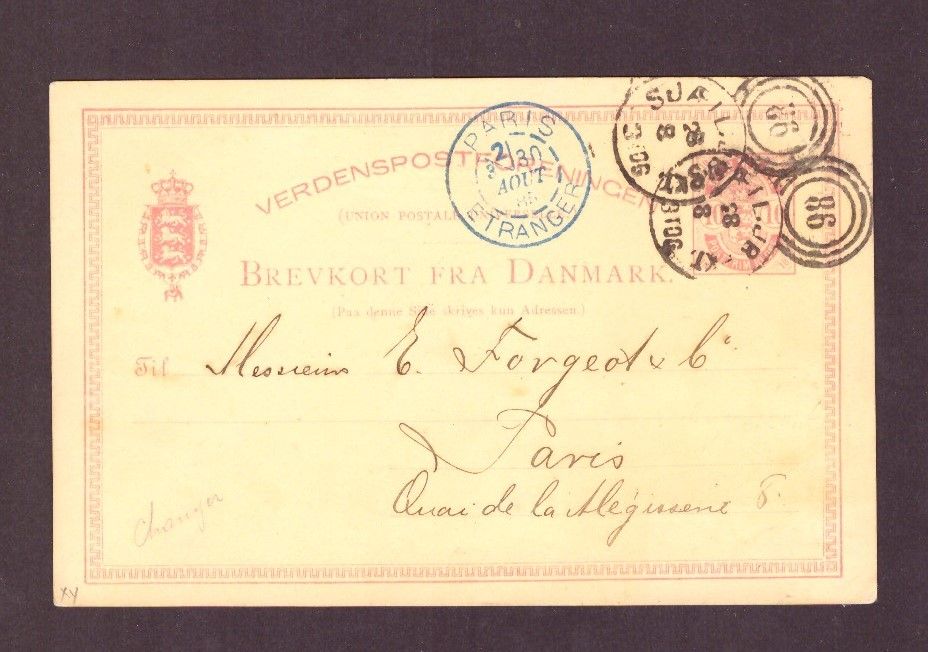 VERDENSPOSTFORENINGEN
(UNION POSTALE UNIVERSELLE)
BREVKORT FRA DANMARK.
(Paa denne Side skrives kun Adressen.)
PARIS
30
AOUT
ETRANGER
28
8
86
28
8
86
10
Til
Messieurs E. Forgeot & Cº
Paris
Quai de la Mégisserie 8.
xy